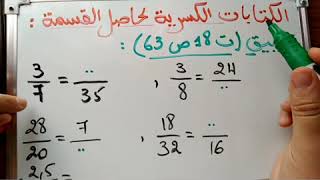 الكتابات الكسرية لحاصل القسمة :
(ت 18 ص 63) :
3/7 = ../35 , 3/8 = 24/..
28/20 = 7/.. , 18/32 = ../16
2,5 =